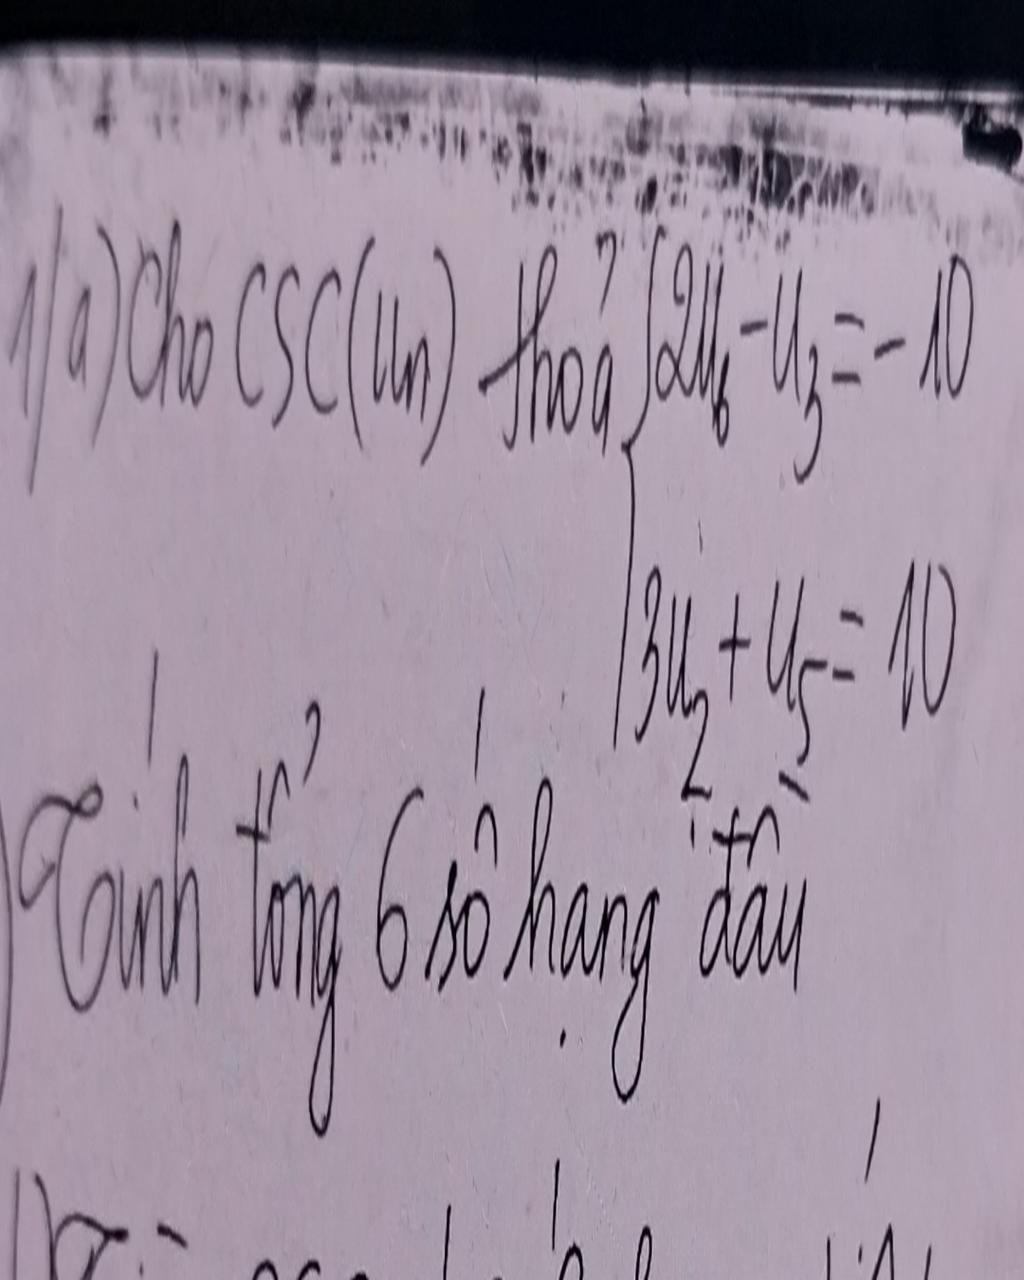 1/a) Cho CSC (Un) thoả { 2U6 - U3 = -10
3U2 + U5 = 10
Tính tổng 6 số hạng đầu